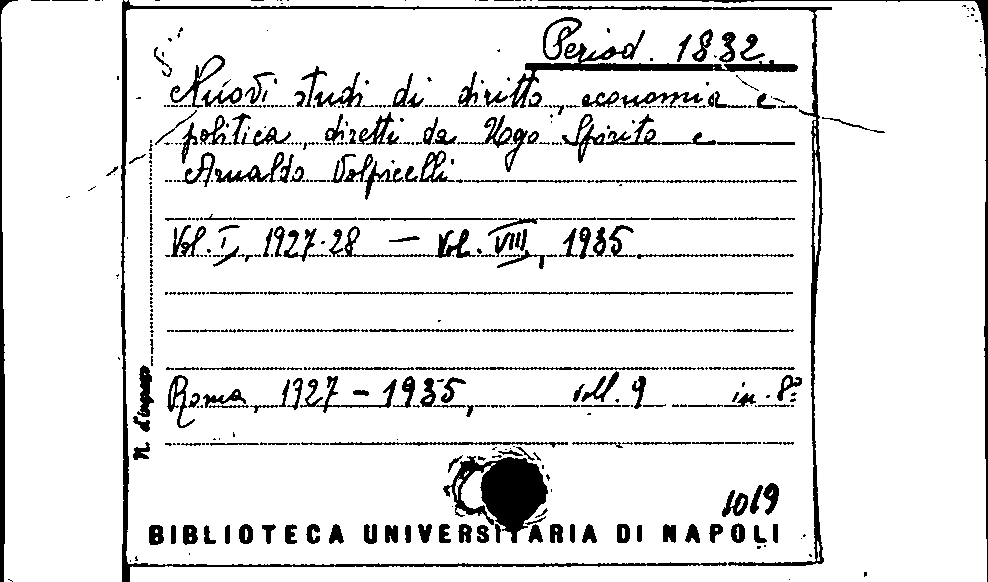 Period. 1832.
Nuovi studi di diritto, economia e
politica, diretti da Ugo Spirito e
Arnaldo Volpicelli.
Vol. I, 1927-28 — Vol. VIII, 1935.
Roma, 1927 - 1935, voll. 9 in-8º
N. d'ingresso
1019
BIBLIOTECA UNIVERSITARIA DI NAPOLI